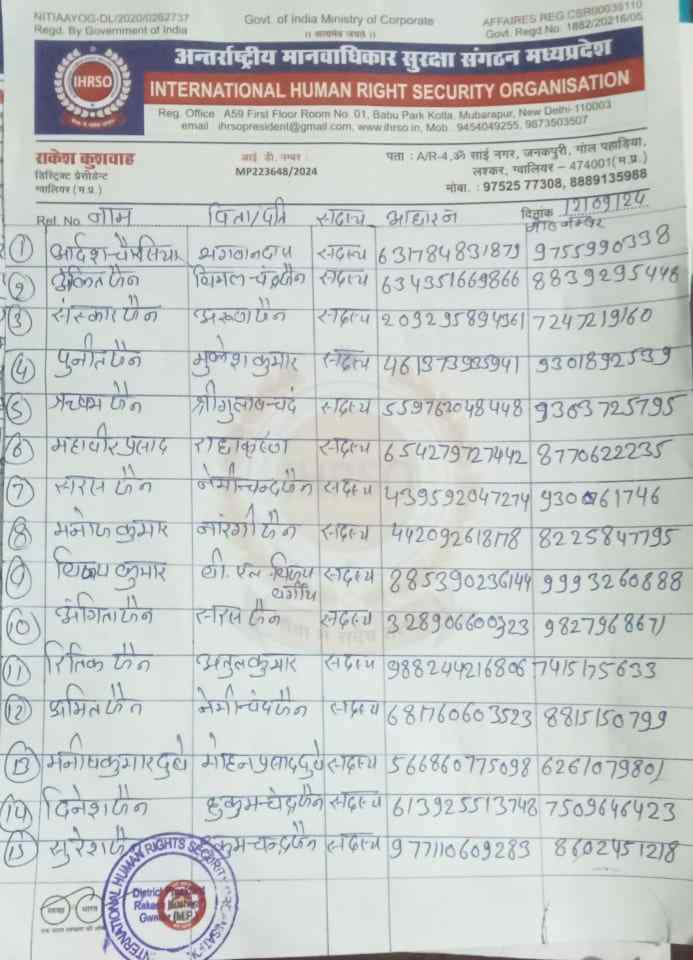 NITIAAYOG-DL/2020/0262737
Govt. of India Ministry of Corporate
AFFAIRES REG.CSR00035110
Regd. By Government of India
।। सत्यमेव जयते ।।
Govt. Regd.No. 1882/20216/05
अन्तर्राष्ट्रीय मानवाधिकार सुरक्षा संगठन मध्यप्रदेश
IHRSO
INTERNATIONAL HUMAN RIGHT SECURITY ORGANISATION
Reg. Office A59 First Floor Room No. 01, Babu Park Kotla, Mubarapur, New Delhi-110003
email ihrsopresident@gmail.com, www.ihrso.in, Mob. 9454049255, 9873503507
राकेश कुशवाह
डिस्ट्रिक्ट प्रेसीडेन्ट
ग्वालियर (म.प्र.)
आई. डी. नम्बर :
MP223648/2024
पता : A/R-4,ॐ साई नगर, जनकपुरी, गोल पहाड़िया,
लश्कर, ग्वालियर – 474001(म.प्र.)
मोबा. : 97525 77308, 8889135988
Ref. No. नाम पिता/पति सदस्य आधार नं दिनांक 12/09/24
मो० नम्बर
1 आदर्श चौरसिया भगवानदास सदस्य 631784831879 9755990338
2 अंकित जैन विमल चंद्र जैन सदस्य 634351669866 8839295448
3 संस्कार जैन अरूण जैन सदस्य 209295894361 7247219160
4 पुनीत जैन मुकेश कुमार सदस्य 461373925941 9301892539
5 ऋषभ जैन श्री गुलाबचंद सदस्य 559763048448 9303725795
6 महावीर प्रसाद राधाकृष्ण सदस्य 654279727442 8770622235
7 सारस जैन नेमीचन्द जैन सदस्य 439592047274 930061746
8 मनोज कुमार नारंगी जैन सदस्य 442092618178 8225847795
9 विजय कुमार वी. एल. विजय वर्गीय सदस्य 885390236144 9993260888
10 अंगिता जैन सारस जैन सदस्य 328906600323 9827968671
11 रितिक जैन अतुल कुमार सदस्य 988244216806 7415175633
12 अमित जैन नेमीचंद जैन सदस्य 681760603523 8815150799
13 मनोज कुमार दुबे मोहन प्रसाद दुबे सदस्य 566860775098 6261079801
14 दिनेश जैन हुकुमचंद जैन सदस्य 613925513748 7509646423
15 सुरेश जैन हुकुमचन्द जैन सदस्य 977110609283 8602451218
INTERNATIONAL HUMAN RIGHTS SECURITY ORGANISATION
District President
Rakesh Kushwah
Gwalior (M.P.)
स्वच्छ भारत
एक कदम स्वच्छता की ओर